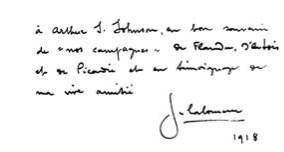 à Arthur S. Johnson, en bon souvenir
de "nos campagnes" de Flandre, d'Artois
et de Picardie et en témoignage de
ma vive amitié
1918